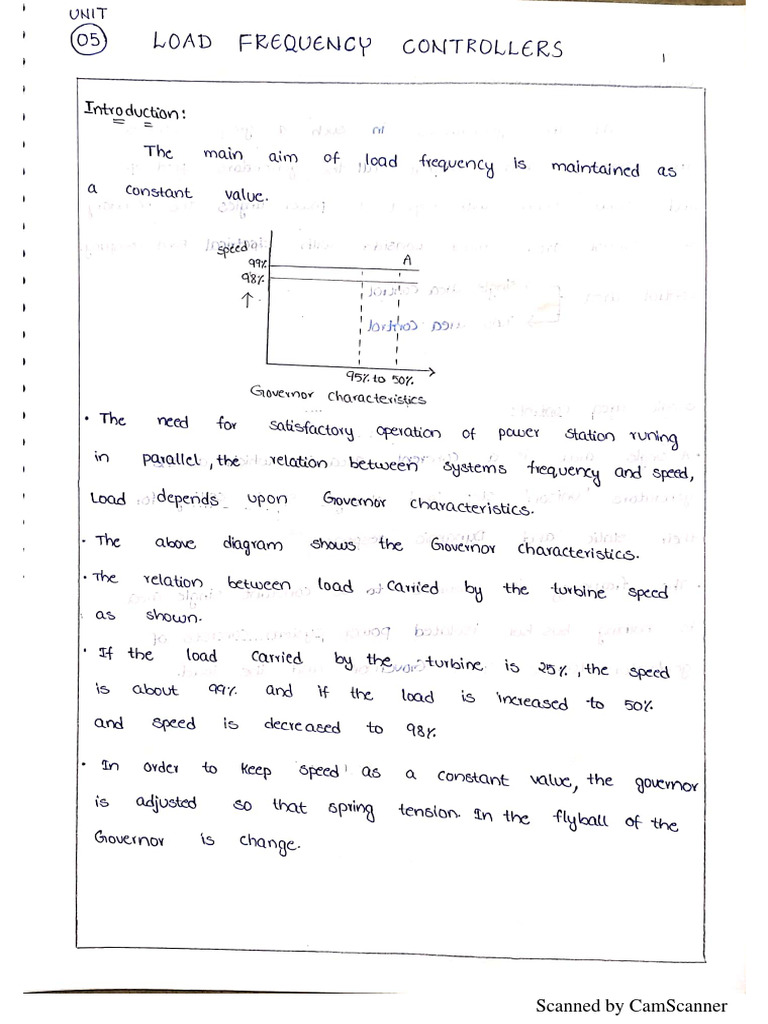 UNIT
05 LOAD FREQUENCY CONTROLLERS
1
Introduction:
The main aim of load frequency is maintained as
a constant value.
speed
99%
A
98%
95% to 50%
Governor characteristics
• The need for satisfactory operation of power station runing
in parallel, the relation between systems frequency and speed,
Load depends upon Governor characteristics.
• The above diagram shows the Governor characteristics.
• The relation between load carried by the turbine speed
as shown.
• If the load carried by the turbine is 25%, the speed
is about 99% and if the load is increased to 50%
and speed is decreased to 98%
• In order to keep speed as a constant value, the governor
is adjusted so that spring tension. In the flyball of the
Governor is change.
Scanned by CamScanner